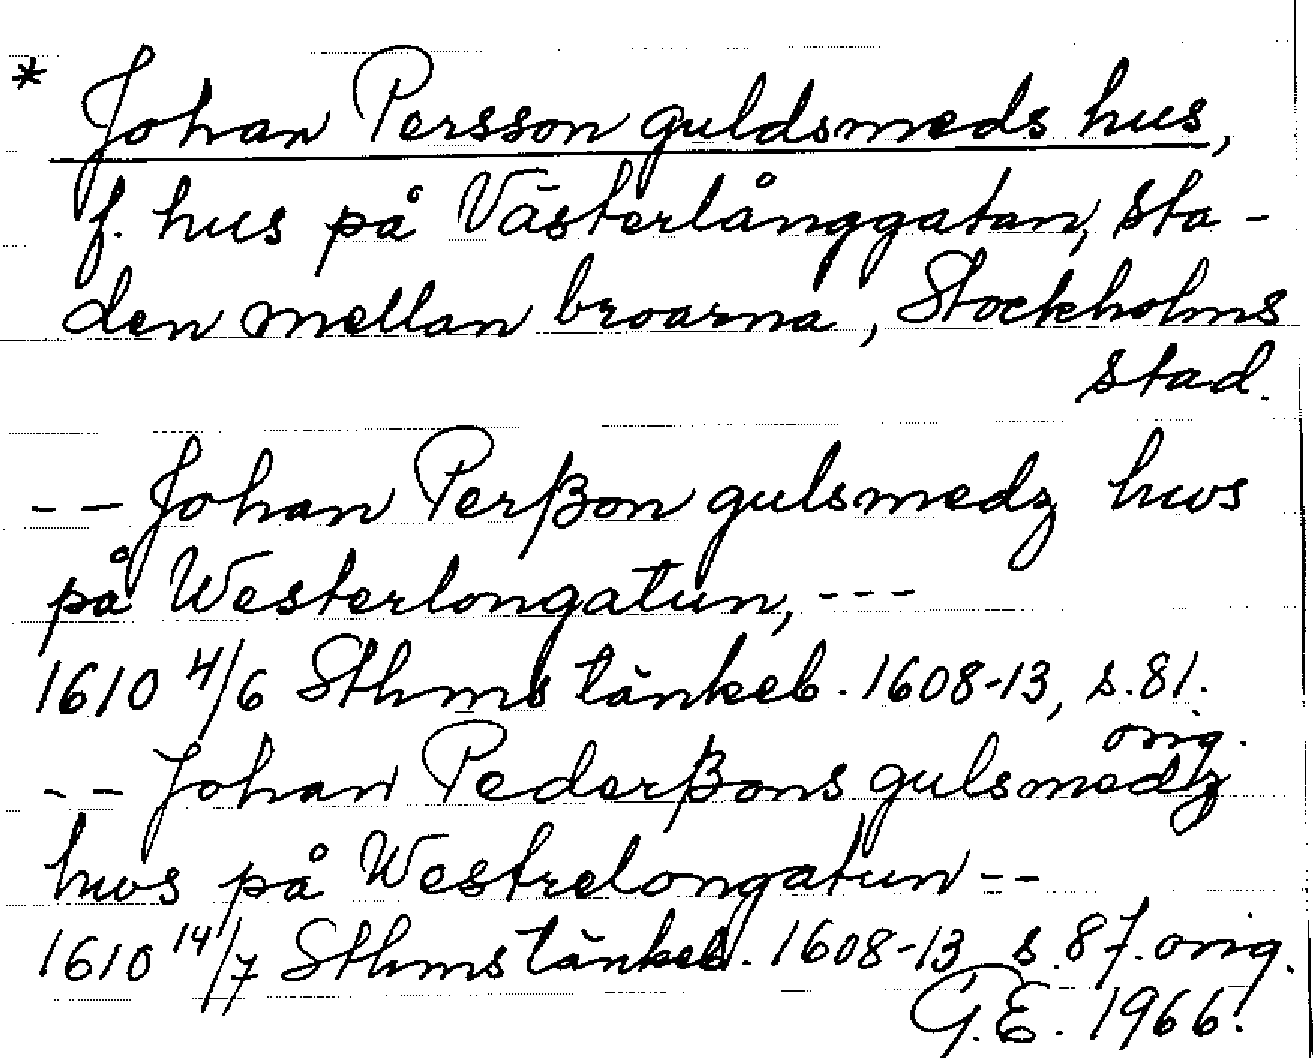 * Johan Persson guldsmeds hus,
f. hus på Västerlånggatan, Sta-
den mellan broarna, Stockholms
stad.
-- Johan Perßon gulsmedz hws
på Westerlongatun, ---
1610 4/6 Sthms tänkeb. 1608-13, s. 81.
orig.
-- Johan Pederßons gulsmedz
hws på Westrelongatun --
1610 14/7 Sthms tänkeb. 1608-13 s. 87. orig.
G.E. 1966.